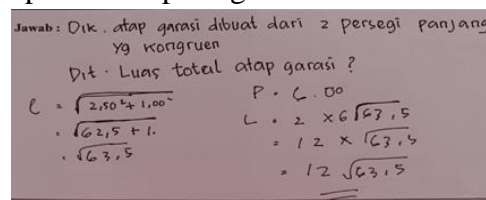 Jawab : Dik. atap garasi dibuat dari 2 persegi panjang
yg kongruen
Dit. Luas total atap garasi ?
l = √2,50² + 1,00²
= √62,5 + 1.
= √63,5
P = 6.00
L = 2 × 6√63,5
= 12 × √63,5
= 12 √63,5